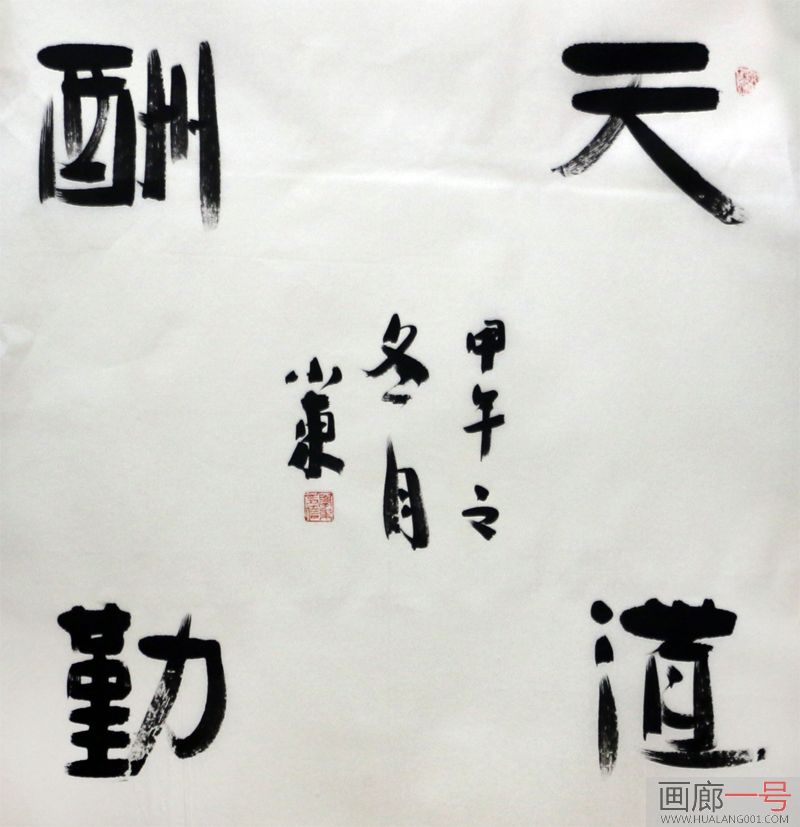 天道
酬勤
甲午之
冬月
小東
画廊一号
WWW.HUALANG001.COM